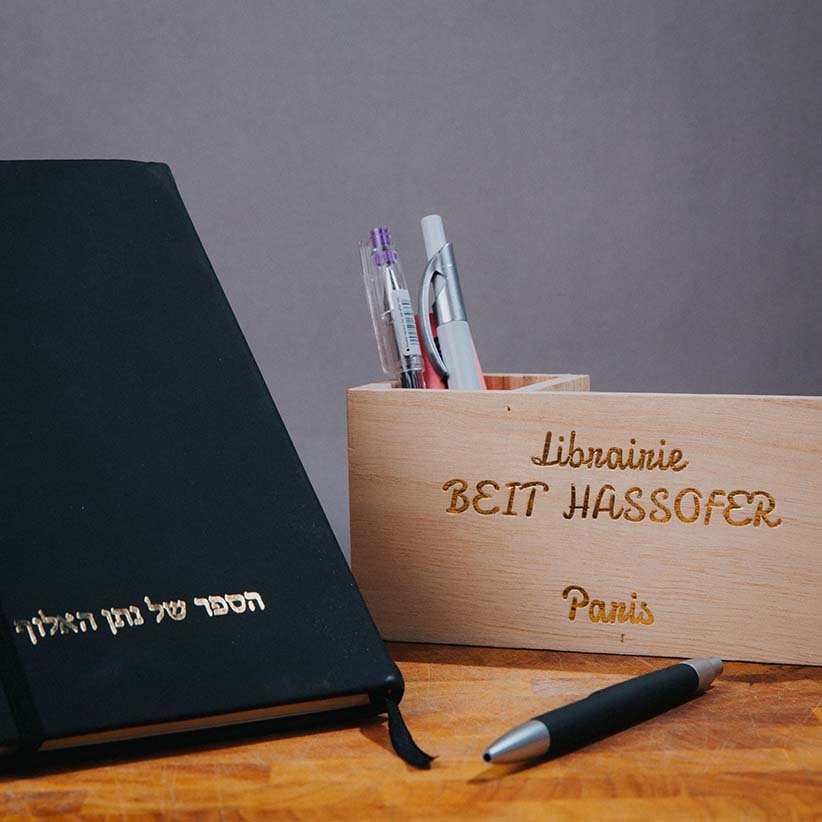 הספר של נתן האלוף
Librairie
BEIT HASSOFER
Paris